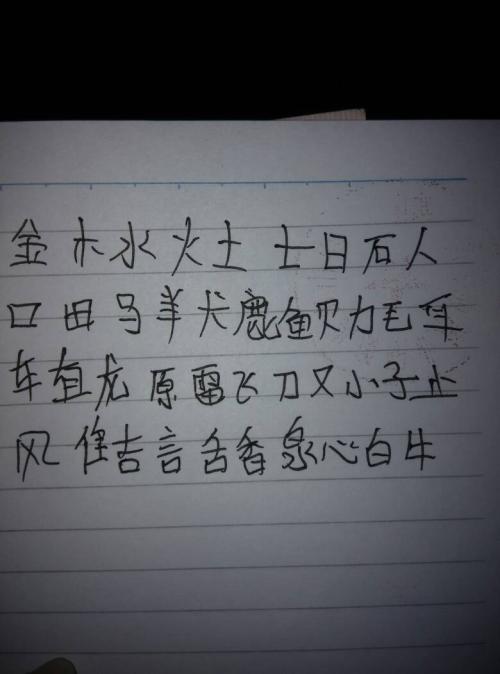 金木水火土 士日石人
口田马羊犬鹿鱼贝力毛耳
车直龙原雷飞刀又小子止
风隹吉言舌香泉心白牛